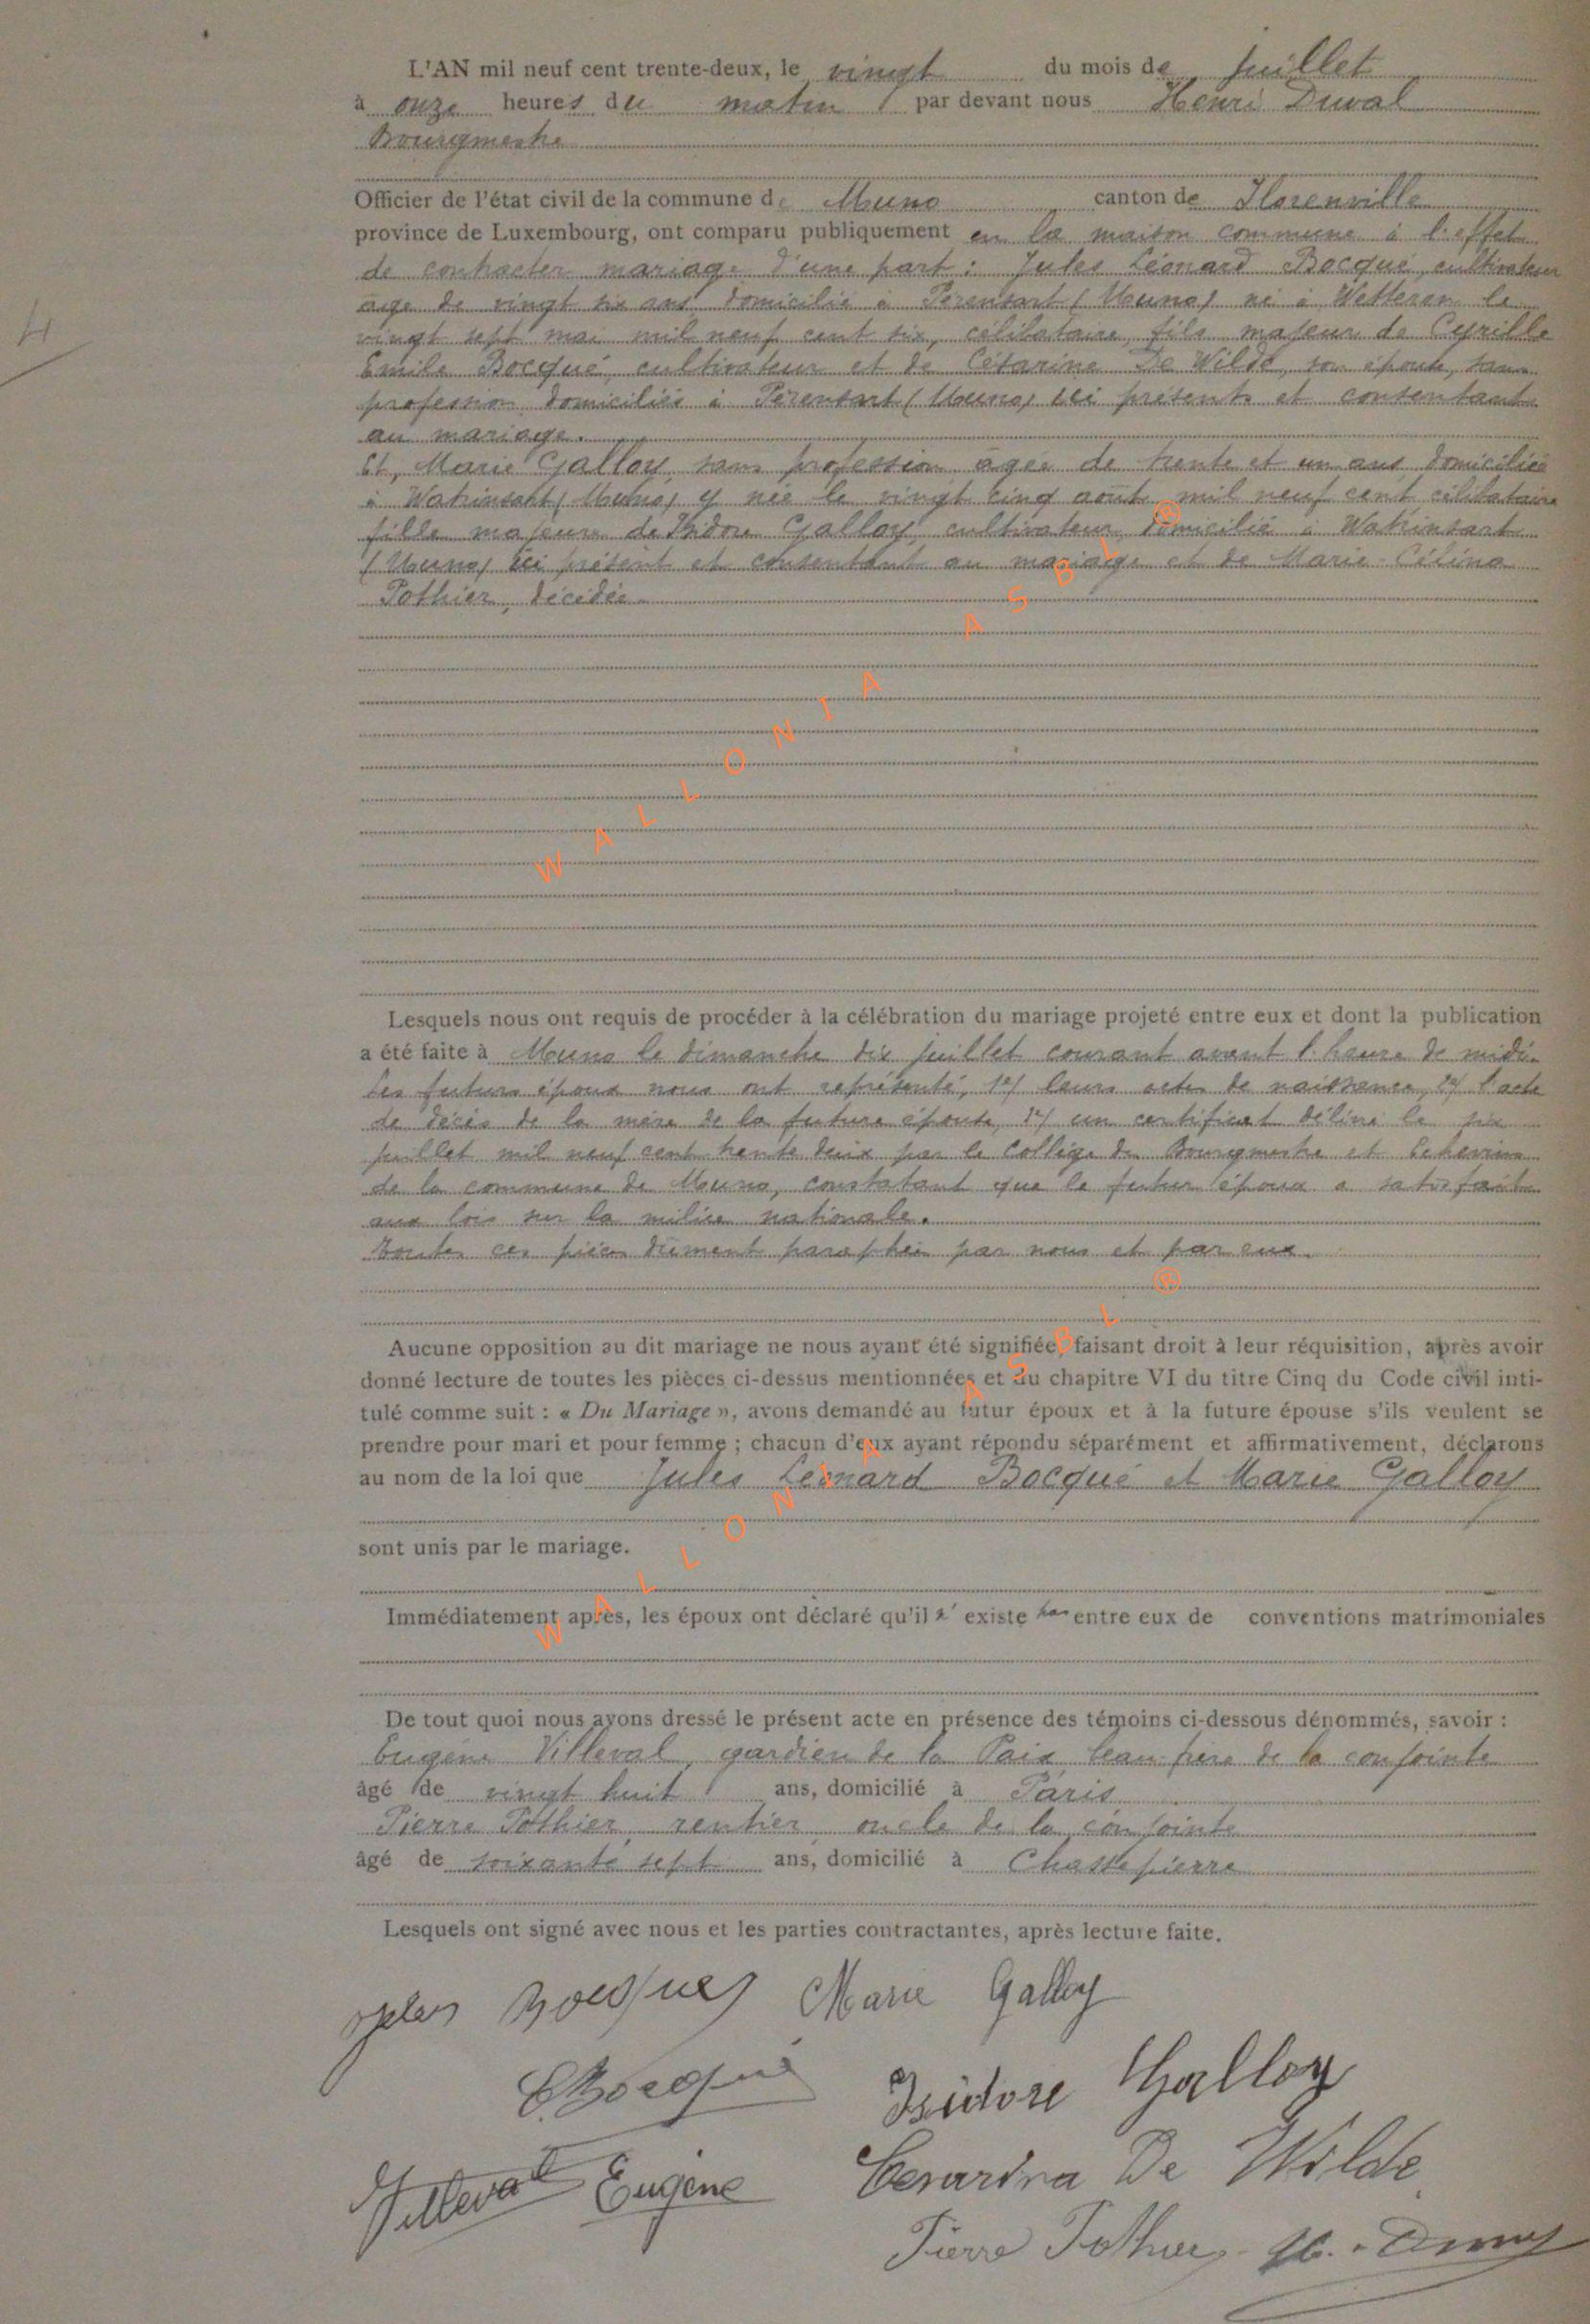 4
L'AN mil neuf cent trente-deux, le vingt du mois de Juillet
à onze heures du matin par devant nous Henri Duval
Bourgmestre
Officier de l'état civil de la commune de Muno canton de Florenville
province de Luxembourg, ont comparu publiquement en la maison commune à l'effet
de contracter mariage d'une part : Jules Léonard Bocqué, cultivateur
âgé de vingt six ans domicilié à (Muno) né à Wetteren le
vingt sept mai mil neuf cent six, célibataire, fils majeur de Cyrille
Emile Bocqué, cultivateur et de Césarine De Wilde, son épouse, sans
profession domiciliés à (Muno) ici présents et consentants
au mariage.
Et, Marie Galloy, sans profession âgée de trente et un ans domiciliée
à Watrinsart (Muno) y née le vingt cinq août mil neuf cent célibataire
fille majeure de Isidore Galloy, cultivateur domicilié à Watrinsart
(Muno) ici présent et consentant au mariage et de Marie Célina
Pothier, décédée.
WALLONIA ASBL ®
Lesquels nous ont requis de procéder à la célébration du mariage projeté entre eux et dont la publication
a été faite à Muno le dimanche dix juillet courant avant l'heure de midi.
Les futurs époux nous ont représenté, 1°/ leurs actes de naissance, 2°/ l'acte
de décès de la mère de la future épouse, 3°/ un certificat délivré le six
juillet mil neuf cent trente deux par le Collège des Bourgmestre et Echevins
de la commune de Muno, constatant que le futur époux a satisfait
aux lois sur la milice nationale.
Toutes ces pièces dûment paraphées par nous et par eux.
Aucune opposition au dit mariage ne nous ayant été signifiée, faisant droit à leur réquisition, après avoir
donné lecture de toutes les pièces ci-dessus mentionnées et du chapitre VI du titre Cinq du Code civil inti-
tulé comme suit : « Du Mariage », avons demandé au futur époux et à la future épouse s'ils veulent se
prendre pour mari et pour femme ; chacun d'eux ayant répondu séparément et affirmativement, déclarons
au nom de la loi que Jules Léonard Bocqué et Marie Galloy
sont unis par le mariage.
WALLONIA ASBL ®
Immédiatement après, les époux ont déclaré qu'il n' existe pas entre eux de conventions matrimoniales
De tout quoi nous avons dressé le présent acte en présence des témoins ci-dessous dénommés, savoir :
Eugène Villeval, gardien de la Paix beau-frère de la conjointe
âgé de vingt huit ans, domicilié à Paris
Pierre Pothier, rentier, oncle de la conjointe
âgé de soixante sept ans, domicilié à Chassepierre
Lesquels ont signé avec nous et les parties contractantes, après lecture faite.
Jules Bocqué Marie Galloy
C Bocqué Isidore Galloy
Villeval Eugène Cesarina De Wilde
Pierre Pothier H. Duval